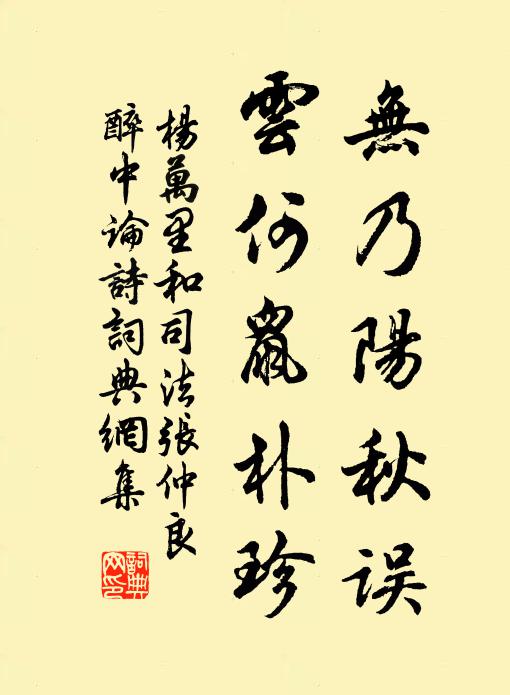 無乃陽秋誤
雲何鼠朴珍
楊萬里和司法張仲良
醉中論詩詞典網集
詞典
网印